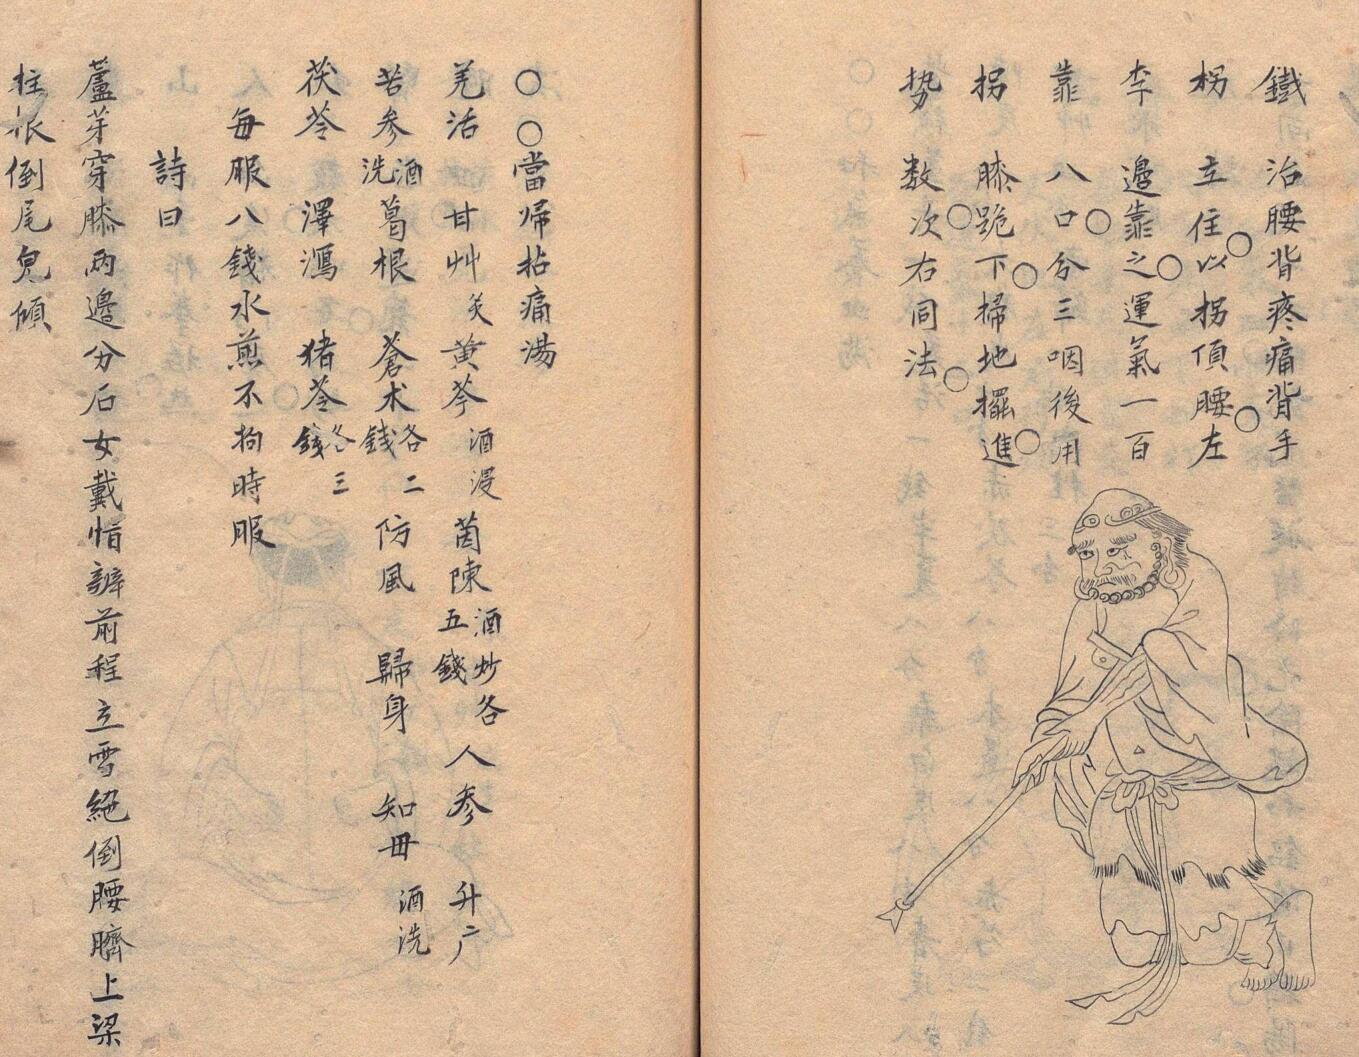 鐵 治腰背疼痛背手
柺 立住以拐頂腰左
李 邉靠之運氣一百
靠 八口分三咽後用
拐 膝跪下掃地擺進
势 数次右同法
○○當㷌拈痛湯
羌活 甘艸炙 黄芩酒浸 茵陳酒炒各五錢 人參 升广
苦参酒洗 葛根 蒼术各二錢 防風 歸身 知毌酒洗
茯苓 澤瀉 猪苓各三錢
每服八錢水煎不拘時服
詩曰
蘆芽穿膝两邉分后女戴 前程立雪絕倒腰臍上梁
柱 倒尾皃傾